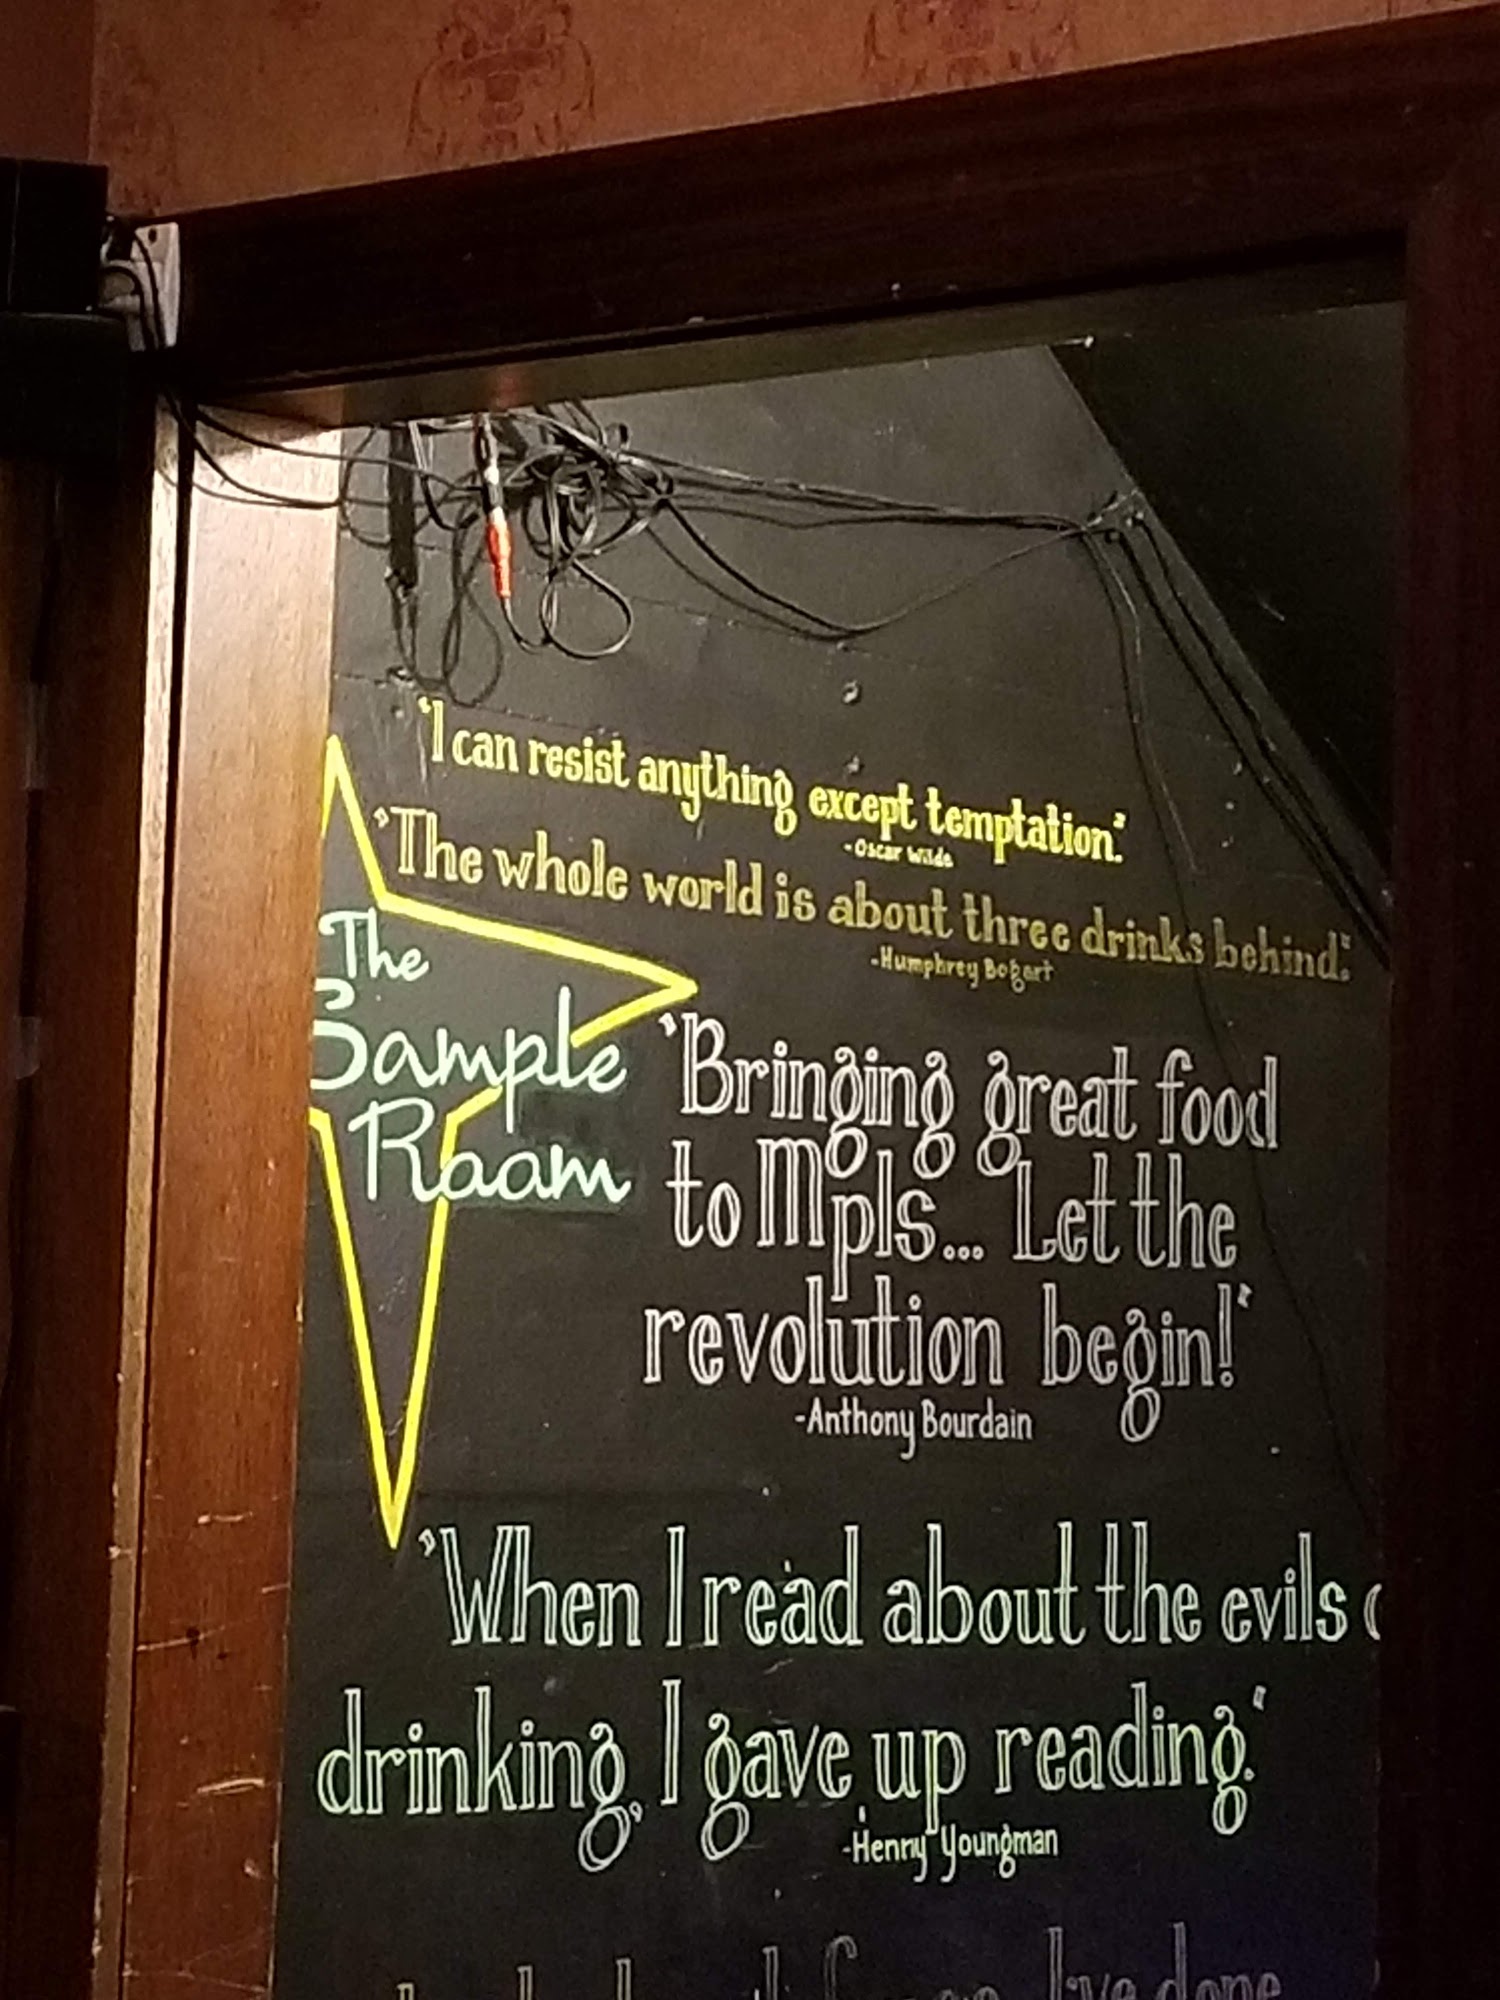 "I can resist anything except temptation."
-Oscar Wilde
"The whole world is about three drinks behind."
-Humphrey Bogart
The
Sample
Room
"Bringing great food
to Mpls... Let the
revolution begin!"
-Anthony Bourdain
"When I read about the evils
drinking, I gave up reading."
-Henny Youngman
I've done